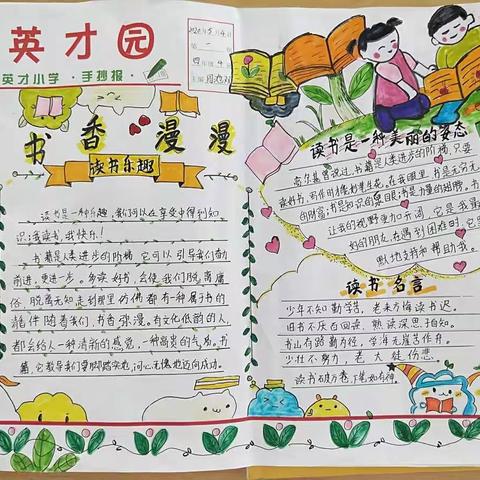 英才园
英才小学·手抄报
书香漫漫
读书乐趣
读书是一种乐趣,我们可以在享受中得到知
识;我读书,我快乐!
书籍是人类进步的阶梯,它可以引导我们奋勇
前进,更进一步。多读好书,会使我们脱离庸
俗,脱离无知,走到那里仿佛都有一种属于书的
能伴随着我们,书香弥漫。有文化低韵的人,
都会给人一种清新的感觉,一种高贵的气息。书
籍,它教导我们要脚踏实地,问心无愧地迈向成功。
读书是一种美丽的姿态
高尔基曾说过,书籍是人类进步的阶梯,只要
读好书,
的财富;书是知识的泉眼;书是力量的翅膀。书
让我的视野更加开阔,它是
好的朋友,在遇到困难时,它
默地支持和帮助我。
读书名言
少年不知勤学苦,老来方悔读书迟。
旧书不厌百回读,熟读深思子自知。
书山有路勤为径,学海无崖苦作舟。
少壮不努力,老大徒伤悲
读书破万卷,下笔如有神。